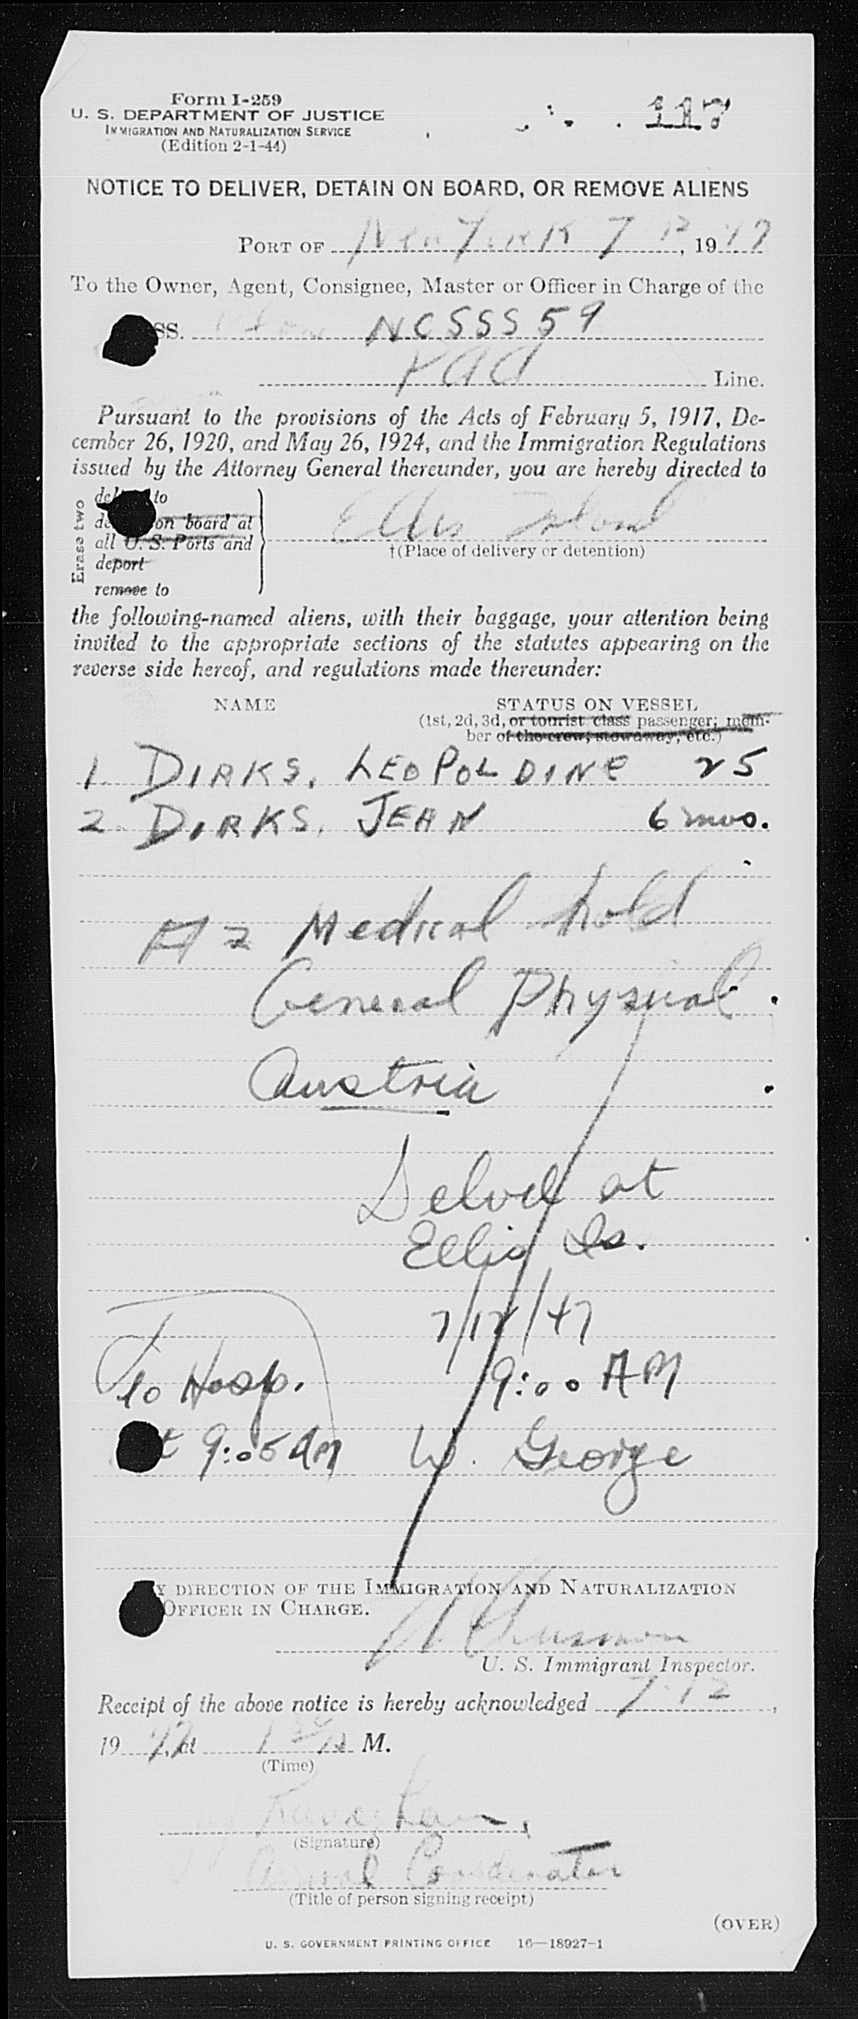 Form I-259
U. S. DEPARTMENT OF JUSTICE
IMMIGRATION AND NATURALIZATION SERVICE
(Edition 2-1-44)
117
NOTICE TO DELIVER, DETAIN ON BOARD, OR REMOVE ALIENS
PORT OF New York 7 12, 1947
To the Owner, Agent, Consignee, Master or Officer in Charge of the
SS. NC SSS 59
PAA Line.
Pursuant to the provisions of the Acts of February 5, 1917, De-
cember 26, 1920, and May 26, 1924, and the Immigration Regulations
issued by the Attorney General thereunder, you are hereby directed to
Erase two
to
on board at
all U. S. Ports and
deport
remove to
Ellis Island
†(Place of delivery or detention)
the following-named aliens, with their baggage, your attention being
invited to the appropriate sections of the statutes appearing on the
reverse side hereof, and regulations made thereunder:
NAME STATUS ON VESSEL
(1st, 2d, 3d, or tourist class passenger; mem-
ber of the crew; stowaway, etc.)
1. DIRKS, LEOPOLDINE 25
2. DIRKS, JEAN 6 mos.
# 2 Medical hold
General Physical
Austria
Delvd at
Ellis Is.
7/12/47
9:00 AM
W. George
To Hosp.
at 9:05 AM
BY DIRECTION OF THE IMMIGRATION AND NATURALIZATION
OFFICER IN CHARGE.
U. S. Immigrant Inspector.
Receipt of the above notice is hereby acknowledged 7-12,
1947, at M.
(Time)
(Signature)
Coordinator
(Title of person signing receipt)
(OVER)
U. S. GOVERNMENT PRINTING OFFICE 16—18927-1